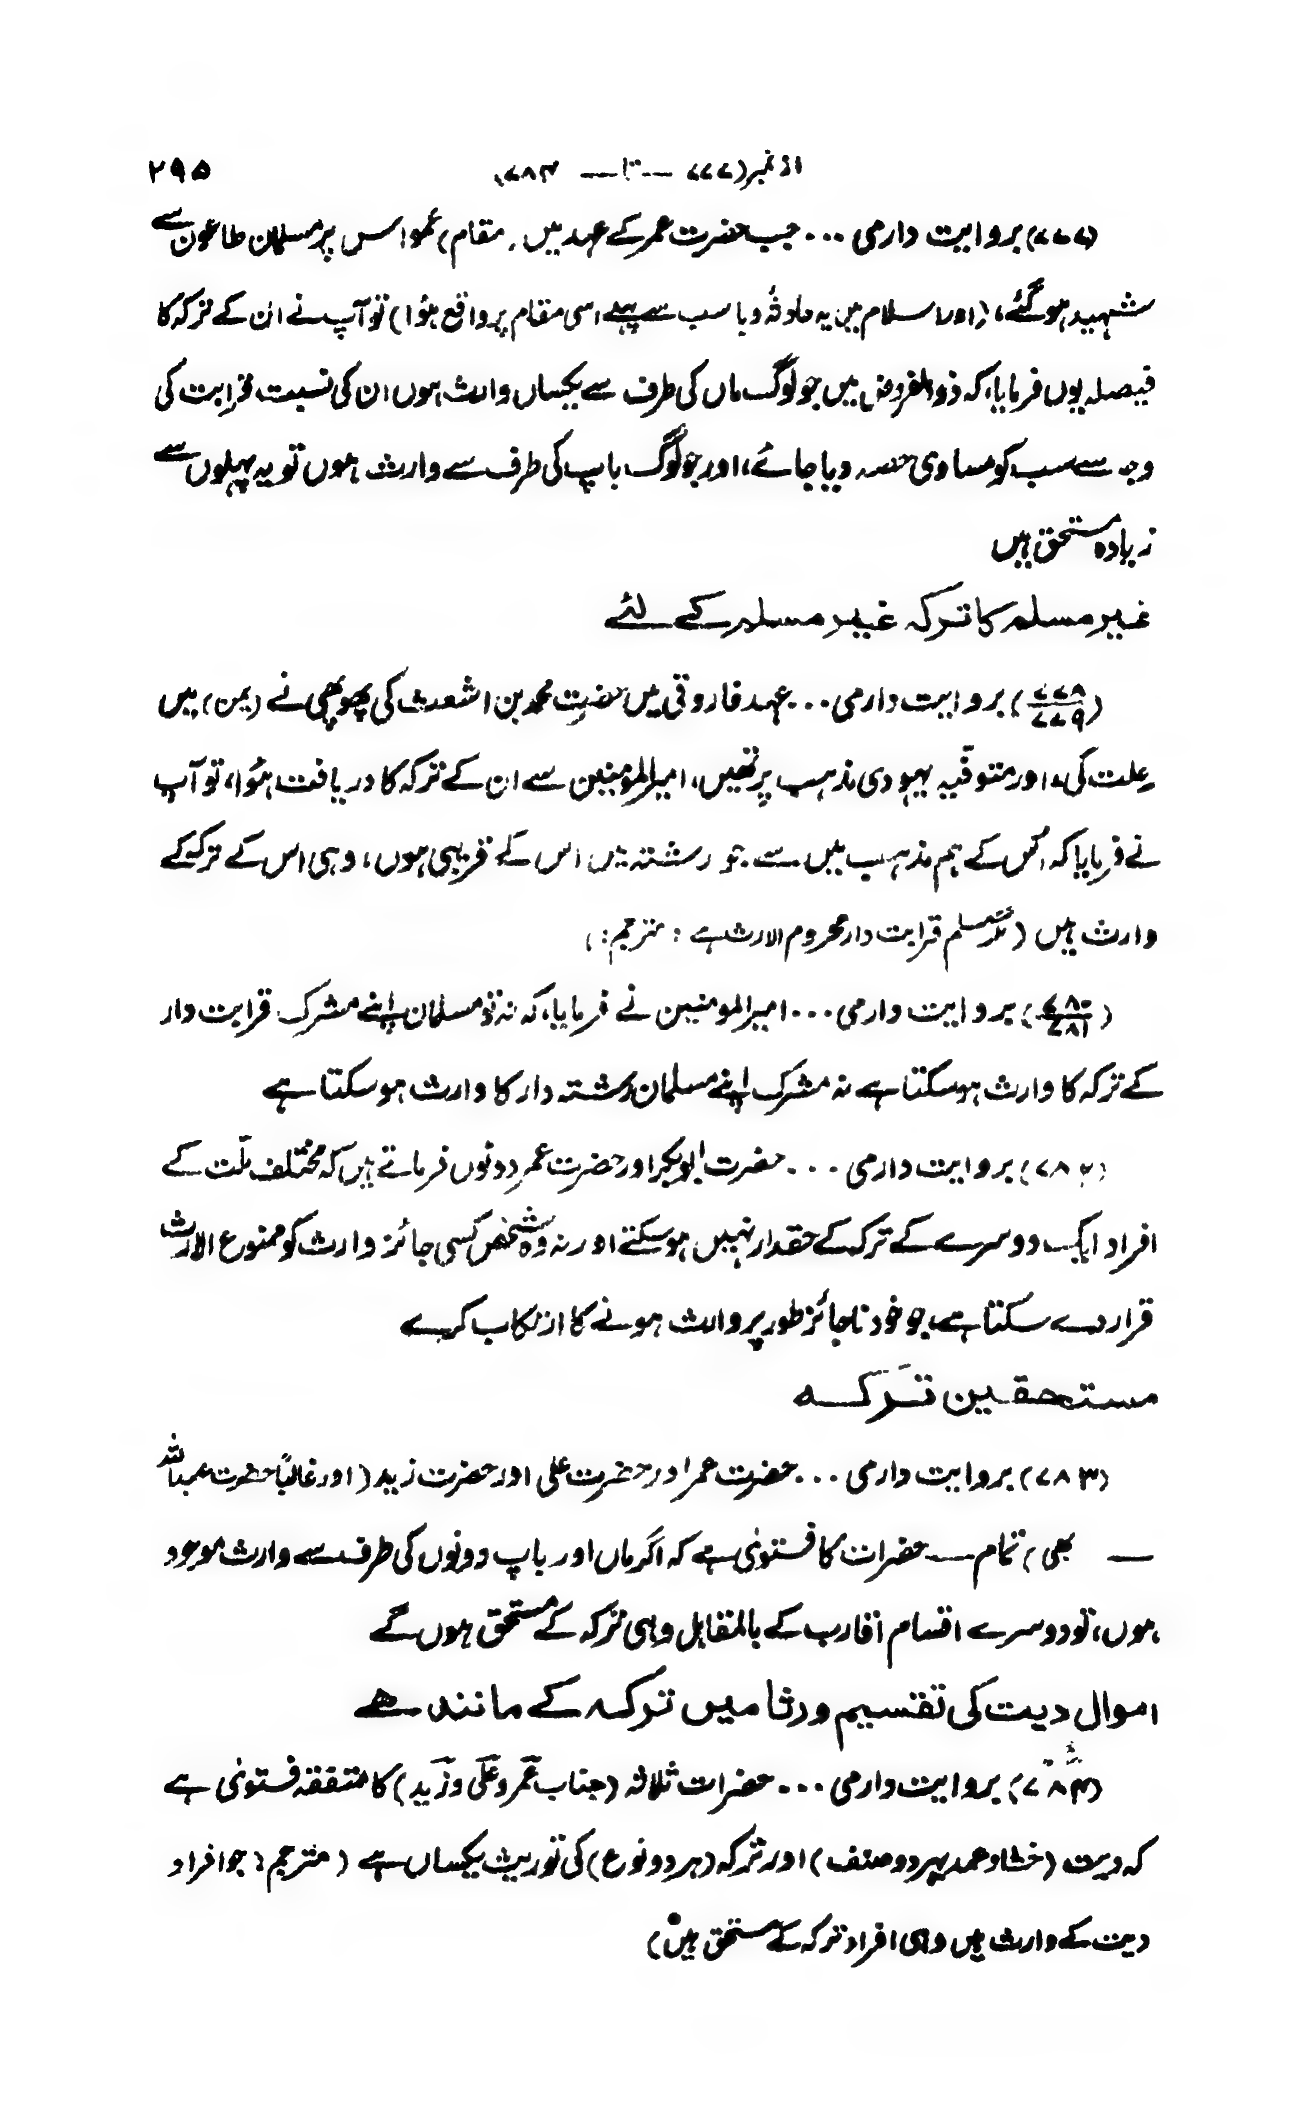 از نمبر (۷۷۷ — تا — ۷۸۴) ۲۹۵
(۷۷۷) بروایت دارمی ... جب حضرت عمر کے عہد میں (مقام) عمواس پر مسلمان طاعون سے
شہید ہو گئے، (اور اسلام میں یہ حادثۂ وبا سب سے پہلے اسی مقام پر واقع ہؤا) تو آپ نے ان کے ترکہ کا
فیصلہ یوں فرمایا، کہ ذو الفروض میں جو لوگ ماں کی طرف سے یکساں وارث ہوں ان کی نسبت قرابت کی
وجہ سے سب کو مساوی حصہ دیا جائے، اور جو لوگ باپ کی طرف سے وارث ہوں تو یہ پہلوں سے
زیادہ مستحق ہیں
غیر مسلم کا ترکہ غیر مسلم کے لئے
(۷۷۸/۷۷۹) بروایت دارمی ... عہد فاروقی میں حضرت محمد بن اشعث کی پھوپھی نے (یمن) میں
رحلت کی، اور متوفّیہ یہودی مذہب پر تھیں، امیر المؤمنین سے ان کے ترکہ کا دریافت ہؤا، تو آپ
نے فرمایا کہ اُس کے ہم مذہب میں سے جو رشتہ میں اس کے قریبی ہوں، وہی اس کے ترکہ کے
وارث ہیں (مگر مسلم قرابت دار محروم الارث ہے : مترجم :)
(۷۸۰/۷۸۱) بروایت دارمی ... امیر المومنین نے فرمایا، کہ نہ تو مسلمان اپنے مشرک قرابت دار
کے ترکہ کا وارث ہو سکتا ہے نہ مشرک اپنے مسلمان رشتہ دار کا وارث ہو سکتا ہے
(۷۸۲) بروایت دارمی ... حضرت ابوبکر اور حضرت عمر دونوں فرماتے ہیں کہ مختلف ملّت کے
افراد ایک دوسرے کے ترکہ کے حقدار نہیں ہو سکتے اور نہ وہ شخص کسی جائز وارث کو ممنوع الارث
قرار دے سکتا ہے، جو خود ناجائز طور پر وارث ہونے کا ارتکاب کرے
مستحقین ترکہ
(۷۸۳) بروایت دارمی ... حضرت عمر اور حضرت علی اور حضرت زید (اور غالباً حضرت عبداللہ
— بھی) تمام — حضرات کا فتویٰ ہے کہ اگر ماں اور باپ دونوں کی طرف سے وارث موجود
ہوں، تو دوسرے اقسام اقارب کے بالمقابل وہی ترکہ کے مستحق ہوں گے
اموال دیت کی تقسیم ورثا میں ترکہ کے مانند ہے
(۷۸۴) بروایت دارمی ... حضرات ثلاثہ (جناب عمر و علی و زید) کا متفقہ فتویٰ ہے
کہ دیت (خطا و عمد ہر دو صنف) اور ترکہ (ہر دو نوع) کی توریث یکساں ہے (مترجم : جو افراد
دیت کے وارث ہیں وہی افراد ترکہ کے مستحق ہیں)